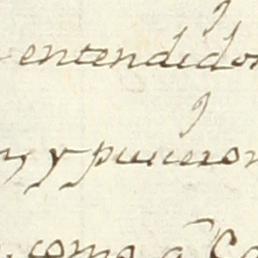 entendido
n, y pusieron
como a